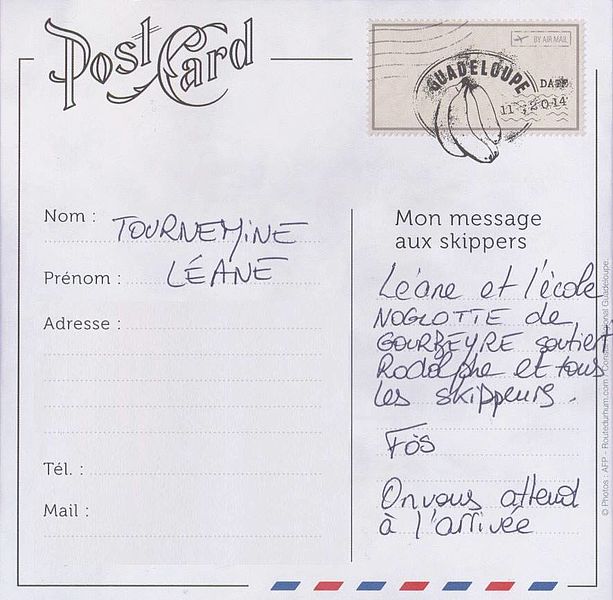 Post Card
BY AIR MAIL
GUADELOUPE
DATE
11 2014
Nom : TOURNEMINE
Prénom : LÉANE
Adresse :
Tél. :
Mail :
Mon message
aux skippers
Léane et l'école
NOGLOTTE de
GOURBEYRE soutient
Rodolphe et tous
les skippeurs.
Fòs
On vous attend
à l'arrivée
© Photos : AFP - Routedurhum.com